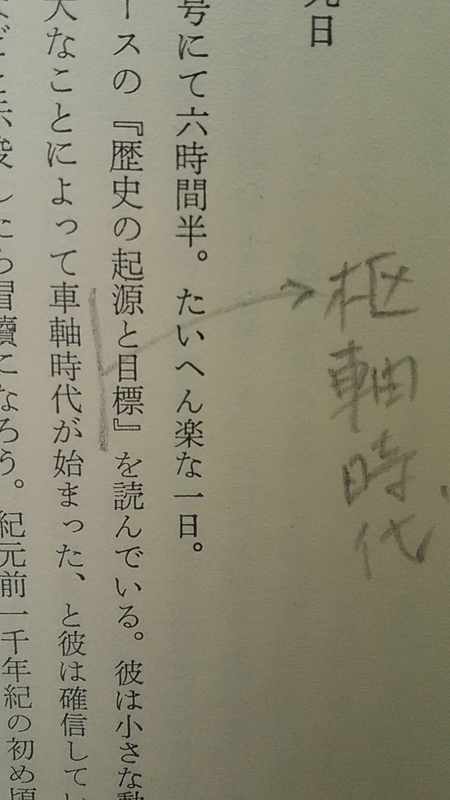 日
枢軸時代
号にて六時間半。たいへん楽な一日。
ースの『歴史の起源と目標』を読んでいる。彼は小さな
大なことによって車軸時代が始まった、と彼は確信してい
したら冒瀆になろう。紀元前一千年紀の初め頃